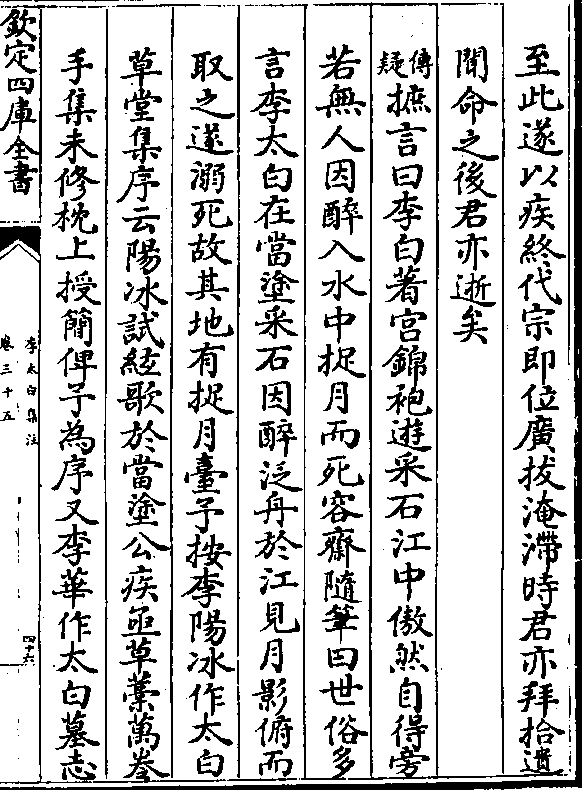 至此遂以疾終代宗即位廣拔淹滯時君亦拜拾遺
聞命之後君亦逝矣
傳疑摭言曰李白著宮錦袍遊采石江中傲然自得旁
若無人因醉入水中捉月而死容齋隨筆曰世俗多
言李太白在當塗采石因醉泛舟於江見月影俯而
取之遂溺死故其地有捉月臺予按李陽冰作太白
草堂集序云陽冰試絃歌於當塗公疾亟草藁萬卷
手集未修枕上授簡俾予為序又李華作太白墓志
欽定四庫全書
李太白集注
卷三十五
四十六